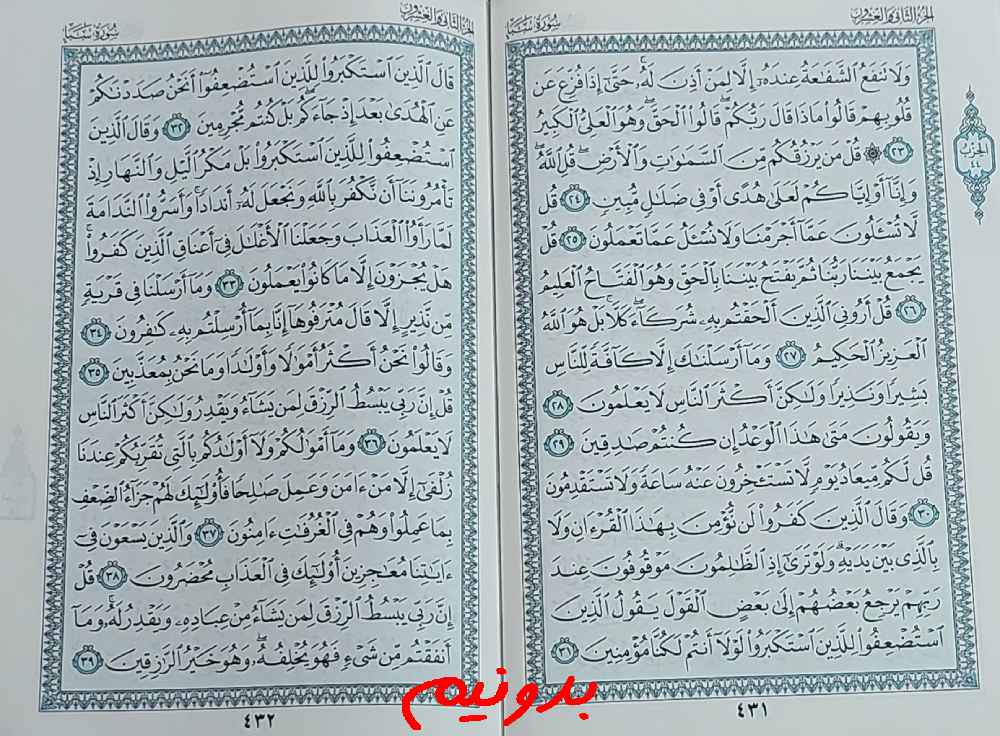 الجزء الثاني والعشرون
سورة سبإ
وَلَا تَنفَعُ ٱلشَّفَـٰعَةُ عِندَهُۥٓ إِلَّا لِمَنْ أَذِنَ لَهُۥ ۚ حَتَّىٰٓ إِذَا فُزِّعَ عَن
قُلُوبِهِمْ قَالُوا۟ مَاذَا قَالَ رَبُّكُمْ ۖ قَالُوا۟ ٱلْحَقَّ ۖ وَهُوَ ٱلْعَلِىُّ ٱلْكَبِيرُ
٢٣ ۞ قُلْ مَن يَرْزُقُكُم مِّنَ ٱلسَّمَـٰوَٰتِ وَٱلْأَرْضِ ۖ قُلِ ٱللَّهُ ۖ
وَإِنَّآ أَوْ إِيَّاكُمْ لَعَلَىٰ هُدًى أَوْ فِى ضَلَـٰلٍ مُّبِينٍ ٢٤ قُل
لَّا تُسْـَٔلُونَ عَمَّآ أَجْرَمْنَا وَلَا نُسْـَٔلُ عَمَّا تَعْمَلُونَ ٢٥ قُلْ
يَجْمَعُ بَيْنَنَا رَبُّنَا ثُمَّ يَفْتَحُ بَيْنَنَا بِٱلْحَقِّ وَهُوَ ٱلْفَتَّاحُ ٱلْعَلِيمُ
٢٦ قُلْ أَرُونِىَ ٱلَّذِينَ أَلْحَقْتُم بِهِۦ شُرَكَآءَ ۖ كَلَّا ۚ بَلْ هُوَ ٱللَّهُ
ٱلْعَزِيزُ ٱلْحَكِيمُ ٢٧ وَمَآ أَرْسَلْنَـٰكَ إِلَّا كَآفَّةً لِّلنَّاسِ
بَشِيرًا وَنَذِيرًا وَلَـٰكِنَّ أَكْثَرَ ٱلنَّاسِ لَا يَعْلَمُونَ ٢٨
وَيَقُولُونَ مَتَىٰ هَـٰذَا ٱلْوَعْدُ إِن كُنتُمْ صَـٰدِقِينَ ٢٩
قُل لَّكُم مِّيعَادُ يَوْمٍ لَّا تَسْتَـْٔخِرُونَ عَنْهُ سَاعَةً وَلَا تَسْتَقْدِمُونَ
٣٠ وَقَالَ ٱلَّذِينَ كَفَرُوا۟ لَن نُّؤْمِنَ بِهَـٰذَا ٱلْقُرْءَانِ وَلَا
بِٱلَّذِى بَيْنَ يَدَيْهِ ۗ وَلَوْ تَرَىٰٓ إِذِ ٱلظَّـٰلِمُونَ مَوْقُوفُونَ عِندَ
رَبِّهِمْ يَرْجِعُ بَعْضُهُمْ إِلَىٰ بَعْضٍ ٱلْقَوْلَ يَقُولُ ٱلَّذِينَ
ٱسْتُضْعِفُوا۟ لِلَّذِينَ ٱسْتَكْبَرُوا۟ لَوْلَآ أَنتُمْ لَكُنَّا مُؤْمِنِينَ ٣١
٤٣١
الحزب
الجزء الثاني والعشرون
سورة سبإ
قَالَ ٱلَّذِينَ ٱسْتَكْبَرُوا۟ لِلَّذِينَ ٱسْتُضْعِفُوٓا۟ أَنَحْنُ صَدَدْنَـٰكُمْ
عَنِ ٱلْهُدَىٰ بَعْدَ إِذْ جَآءَكُم ۖ بَلْ كُنتُم مُّجْرِمِينَ ٣٢ وَقَالَ ٱلَّذِينَ
ٱسْتُضْعِفُوا۟ لِلَّذِينَ ٱسْتَكْبَرُوا۟ بَلْ مَكْرُ ٱلَّيْلِ وَٱلنَّهَارِ إِذْ
تَأْمُرُونَنَآ أَن نَّكْفُرَ بِٱللَّهِ وَنَجْعَلَ لَهُۥٓ أَندَادًا ۚ وَأَسَرُّوا۟ ٱلنَّدَامَةَ
لَمَّا رَأَوُا۟ ٱلْعَذَابَ وَجَعَلْنَا ٱلْأَغْلَـٰلَ فِىٓ أَعْنَاقِ ٱلَّذِينَ كَفَرُوا۟ ۚ
هَلْ يُجْزَوْنَ إِلَّا مَا كَانُوا۟ يَعْمَلُونَ ٣٣ وَمَآ أَرْسَلْنَا فِى قَرْيَةٍ
مِّن نَّذِيرٍ إِلَّا قَالَ مُتْرَفُوهَآ إِنَّا بِمَآ أُرْسِلْتُم بِهِۦ كَـٰفِرُونَ ٣٤
وَقَالُوا۟ نَحْنُ أَكْثَرُ أَمْوَٰلًا وَأَوْلَـٰدًا وَمَا نَحْنُ بِمُعَذَّبِينَ ٣٥
قُلْ إِنَّ رَبِّى يَبْسُطُ ٱلرِّزْقَ لِمَن يَشَآءُ وَيَقْدِرُ وَلَـٰكِنَّ أَكْثَرَ ٱلنَّاسِ
لَا يَعْلَمُونَ ٣٦ وَمَآ أَمْوَٰلُكُمْ وَلَآ أَوْلَـٰدُكُم بِٱلَّتِى تُقَرِّبُكُمْ عِندَنَا
زُلْفَىٰٓ إِلَّا مَنْ ءَامَنَ وَعَمِلَ صَـٰلِحًا فَأُو۟لَـٰٓئِكَ لَهُمْ جَزَآءُ ٱلضِّعْفِ
بِمَا عَمِلُوا۟ وَهُمْ فِى ٱلْغُرُفَـٰتِ ءَامِنُونَ ٣٧ وَٱلَّذِينَ يَسْعَوْنَ فِىٓ
ءَايَـٰتِنَا مُعَـٰجِزِينَ أُو۟لَـٰٓئِكَ فِى ٱلْعَذَابِ مُحْضَرُونَ ٣٨ قُلْ
إِنَّ رَبِّى يَبْسُطُ ٱلرِّزْقَ لِمَن يَشَآءُ مِنْ عِبَادِهِۦ وَيَقْدِرُ لَهُۥ ۚ وَمَآ
أَنفَقْتُم مِّن شَىْءٍ فَهُوَ يُخْلِفُهُۥ ۖ وَهُوَ خَيْرُ ٱلرَّٰزِقِينَ ٣٩
٤٣٢
بدونیم